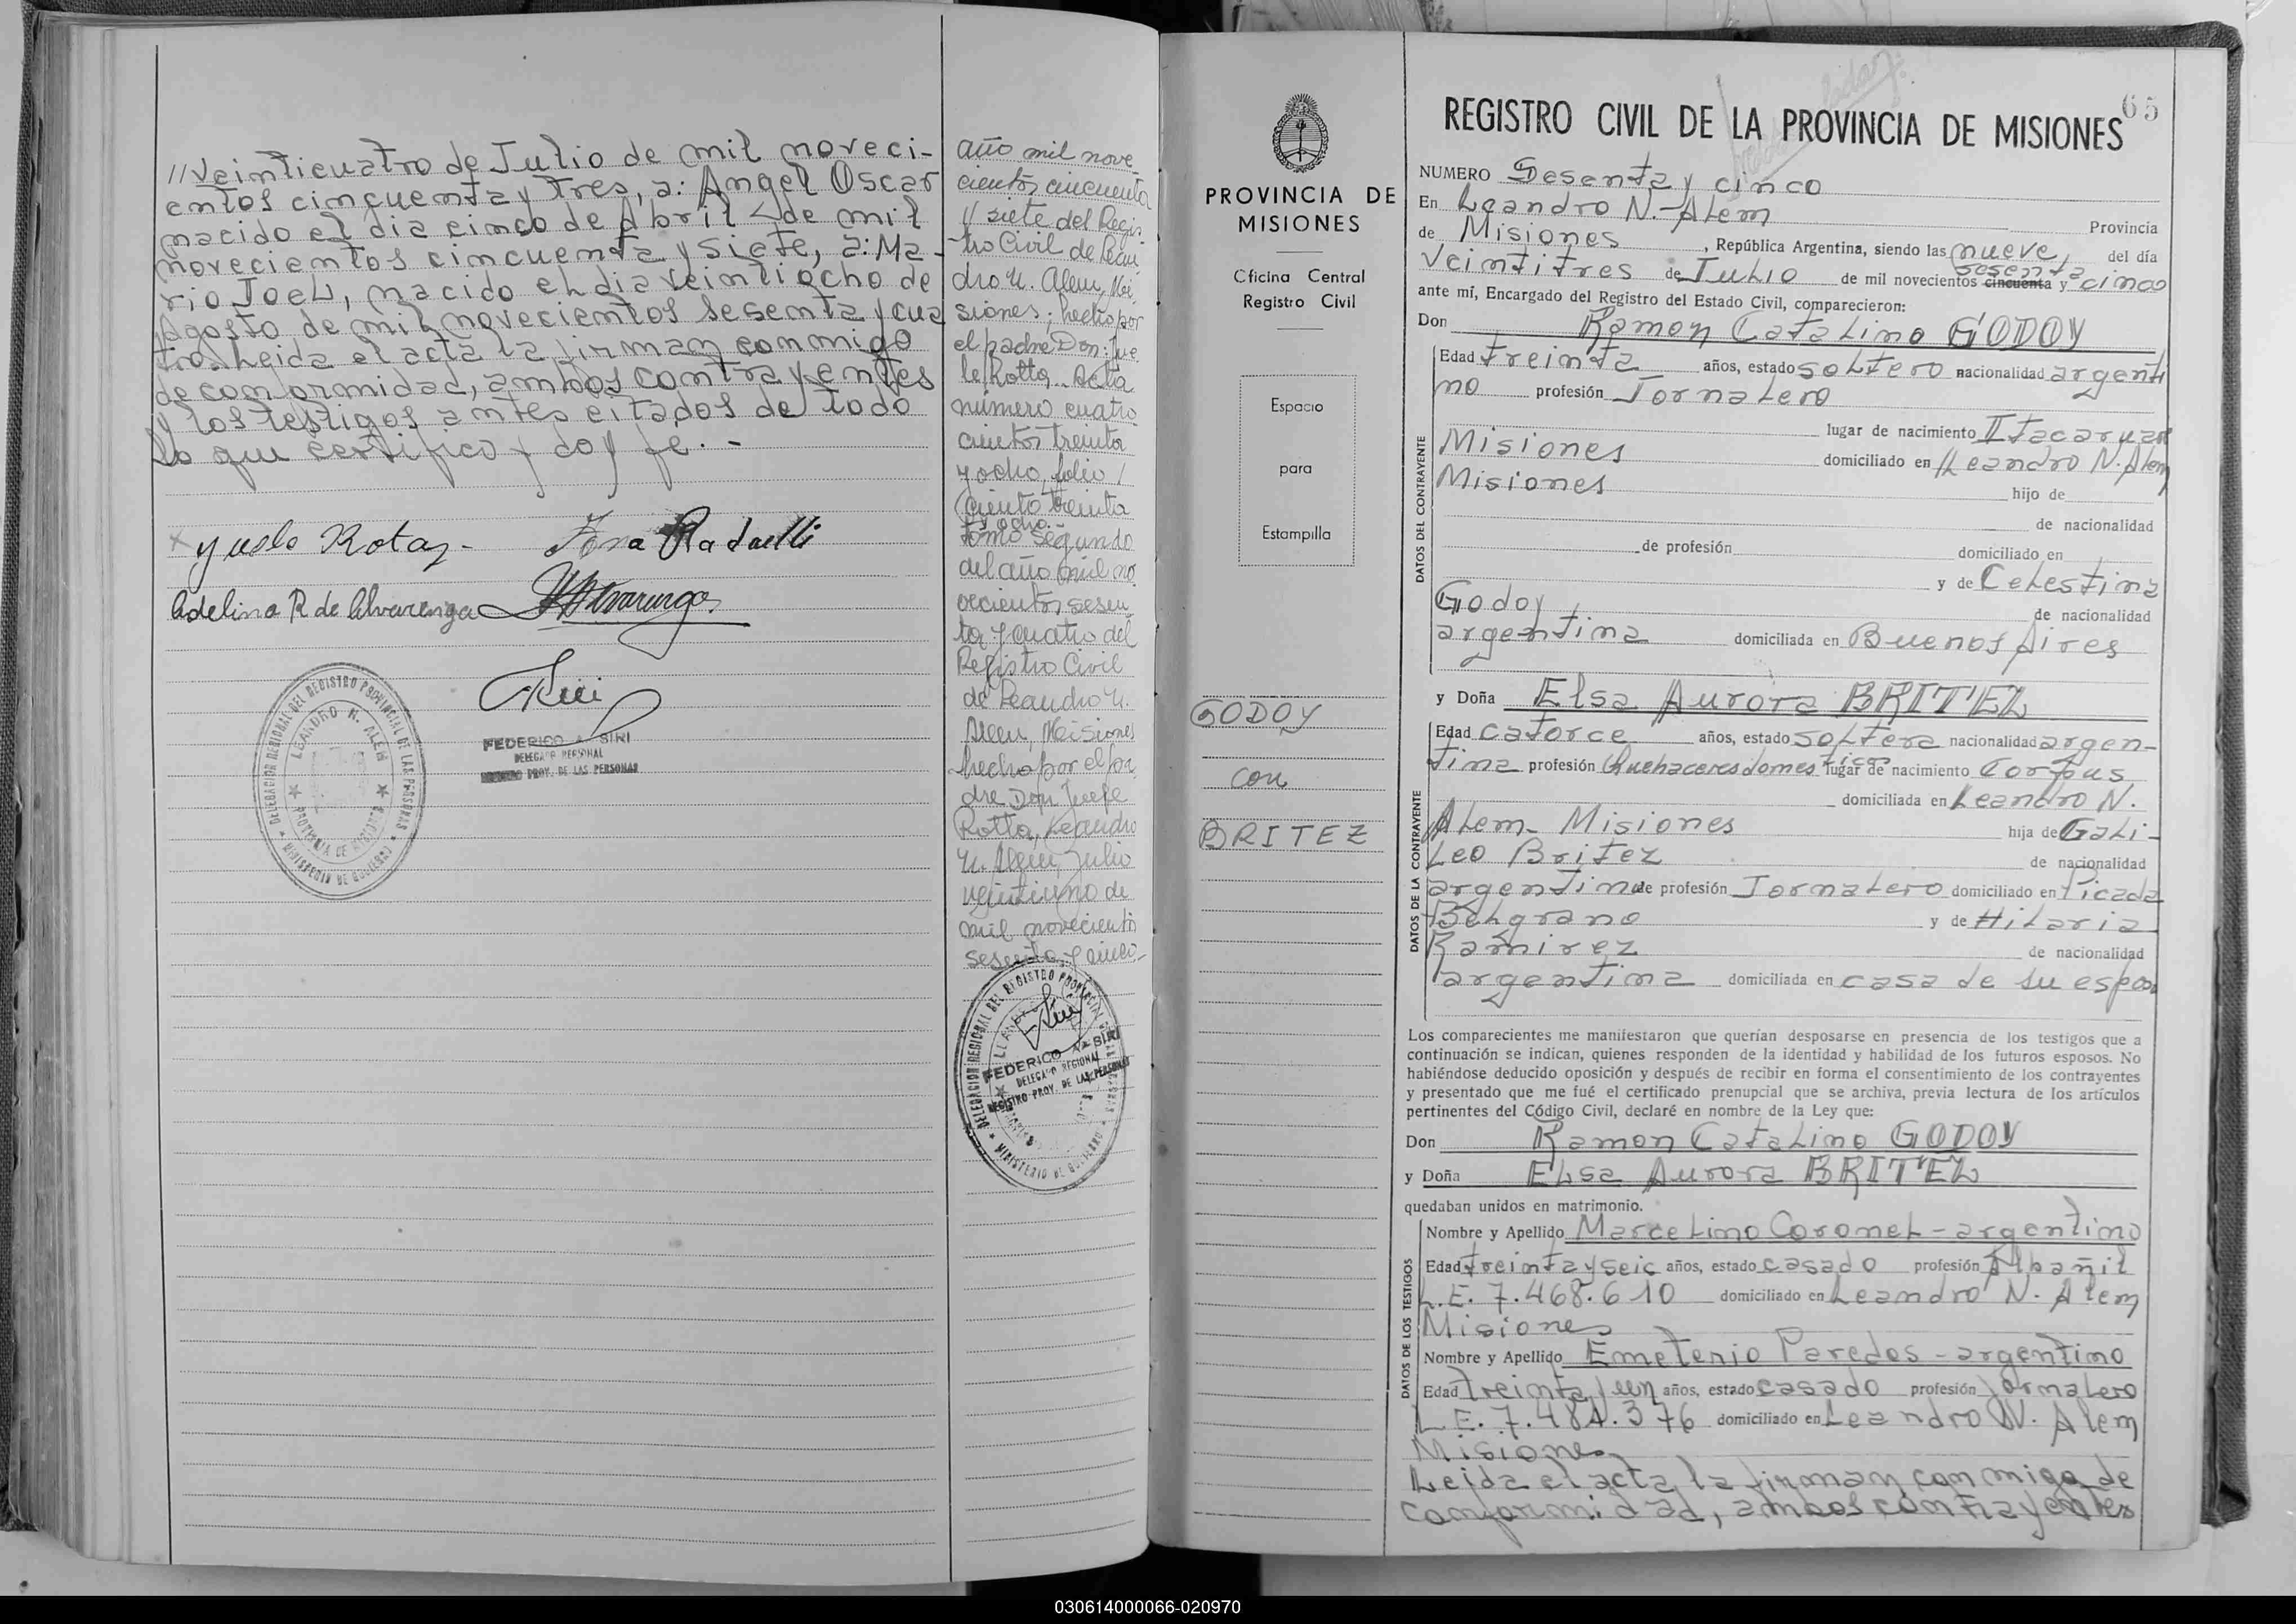 //Veinticuatro de Julio de mil noveci-
entos cincuenta y tres, a: Angel Oscar
nacido el dia cinco de Abril de mil
novecientos cincuenta y siete, a: Ma-
rio Joel, nacido el dia veintiocho de
Agosto de mil novecientos sesenta y cua
tro. Leida el acta la firman conmigo
de conformidad, ambos contrayentes
y los testigos antes citados de todo
lo que certifico y doy fe.-
Adelina R de Alvarenga
FEDERICO A. SIRI
DELEGADO REGIONAL
REGISTRO PROV. DE LAS PERSONAS
DELEGACION REGIONAL DEL REGISTRO PROVINCIAL DE LAS PERSONAS
LEANDRO N. ALEM
PROVINCIA DE MISIONES
MINISTERIO DE GOBIERNO
año mil nove
cientos cincuenta
y siete del Regis
tro Civil de Lean
dro N. Alem, Mi
siones; hecho por
el padre Don: Jue
le Rotta. Acta
número cuatro
cientos treinta
y ocho, folio /
ciento treinta
y ocho.
tomo segundo
del año mil no
vecientos sesen
ta y cuatro del
Registro Civil
de Leandro N.
Alem, Misiones
hecho por el pa
dre Don Juele
Rotta, Leandro
N. Alem, Julio
veintiuno de
mil novecientos
sesenta y cinco-
DELEGACION REGIONAL DEL REGISTRO PROVINCIAL
FEDERICO A. SIRI
DELEGADO REGIONAL
REGISTRO PROV. DE LAS PERSONAS
MINISTERIO DE GOBIERNO
PROVINCIA DE
MISIONES
Oficina Central
Registro Civil
Espacio
para
Estampilla
GODOY
con
BRITEZ
65
REGISTRO CIVIL DE LA PROVINCIA DE MISIONES
NUMERO Sesenta y cinco
En Leandro N.- Alem Provincia
de Misiones, República Argentina, siendo las nueve, del día
Veintitres de Julio de mil novecientos cincuenta sesenta y cinco
ante mí, Encargado del Registro del Estado Civil, comparecieron:
Don Ramon Catalino GODOY
DATOS DEL CONTRAYENTE
Edad treinta años, estado soltero nacionalidad argenti
no profesión Jornalero
lugar de nacimiento Itacaruaré
Misiones domiciliado en Leandro N. Alem
Misiones hijo de
de nacionalidad
de profesión domiciliado en
y de Celestina
Godoy, de nacionalidad
argentina domiciliada en Buenos Aires
y Doña Elsa Aurora BRITEZ
DATOS DE LA CONTRAYENTE
Edad catorce años, estado soltera nacionalidad argen-
tina profesión Quehaceres domesticos lugar de nacimiento Corpus
domiciliada en Leandro N.
Alem- Misiones hija de Gali-
leo Britez de nacionalidad
argentina de profesión Jornalero domiciliado en Picada
Belgrano y de Hilaria
Ramirez de nacionalidad
argentina domiciliada en casa de su esposo
Los comparecientes me manifestaron que querían desposarse en presencia de los testigos que a
continuación se indican, quienes responden de la identidad y habilidad de los futuros esposos. No
habiéndose deducido oposición y después de recibir en forma el consentimiento de los contrayentes
y presentado que me fué el certificado prenupcial que se archiva, previa lectura de los artículos
pertinentes del Código Civil, declaré en nombre de la Ley que:
Don Ramon Catalino GODOY
y Doña Elsa Aurora BRITEZ
quedaban unidos en matrimonio.
DATOS DE LOS TESTIGOS
Nombre y Apellido Marcelino Coronel - argentino
Edad treinta y seis años, estado casado profesión Albañil
L.E. 7.468.610 domiciliado en Leandro N. Alem
Misiones
Nombre y Apellido Emeterio Paredes - argentino
Edad treinta y un años, estado casado profesión Jornalero
L.E. 7.484.376 domiciliado en Leandro N. Alem
Misiones
Leida el acta la firman conmigo de
conformidad, ambos contrayentes
030614000066-020970